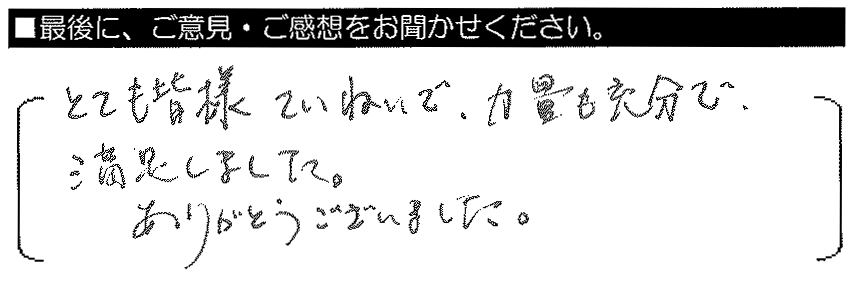 ■最後に、ご意見・ご感想をお聞かせください。
とても皆様ていねいで、力量も充分で、
満足しました。
ありがとうございました。